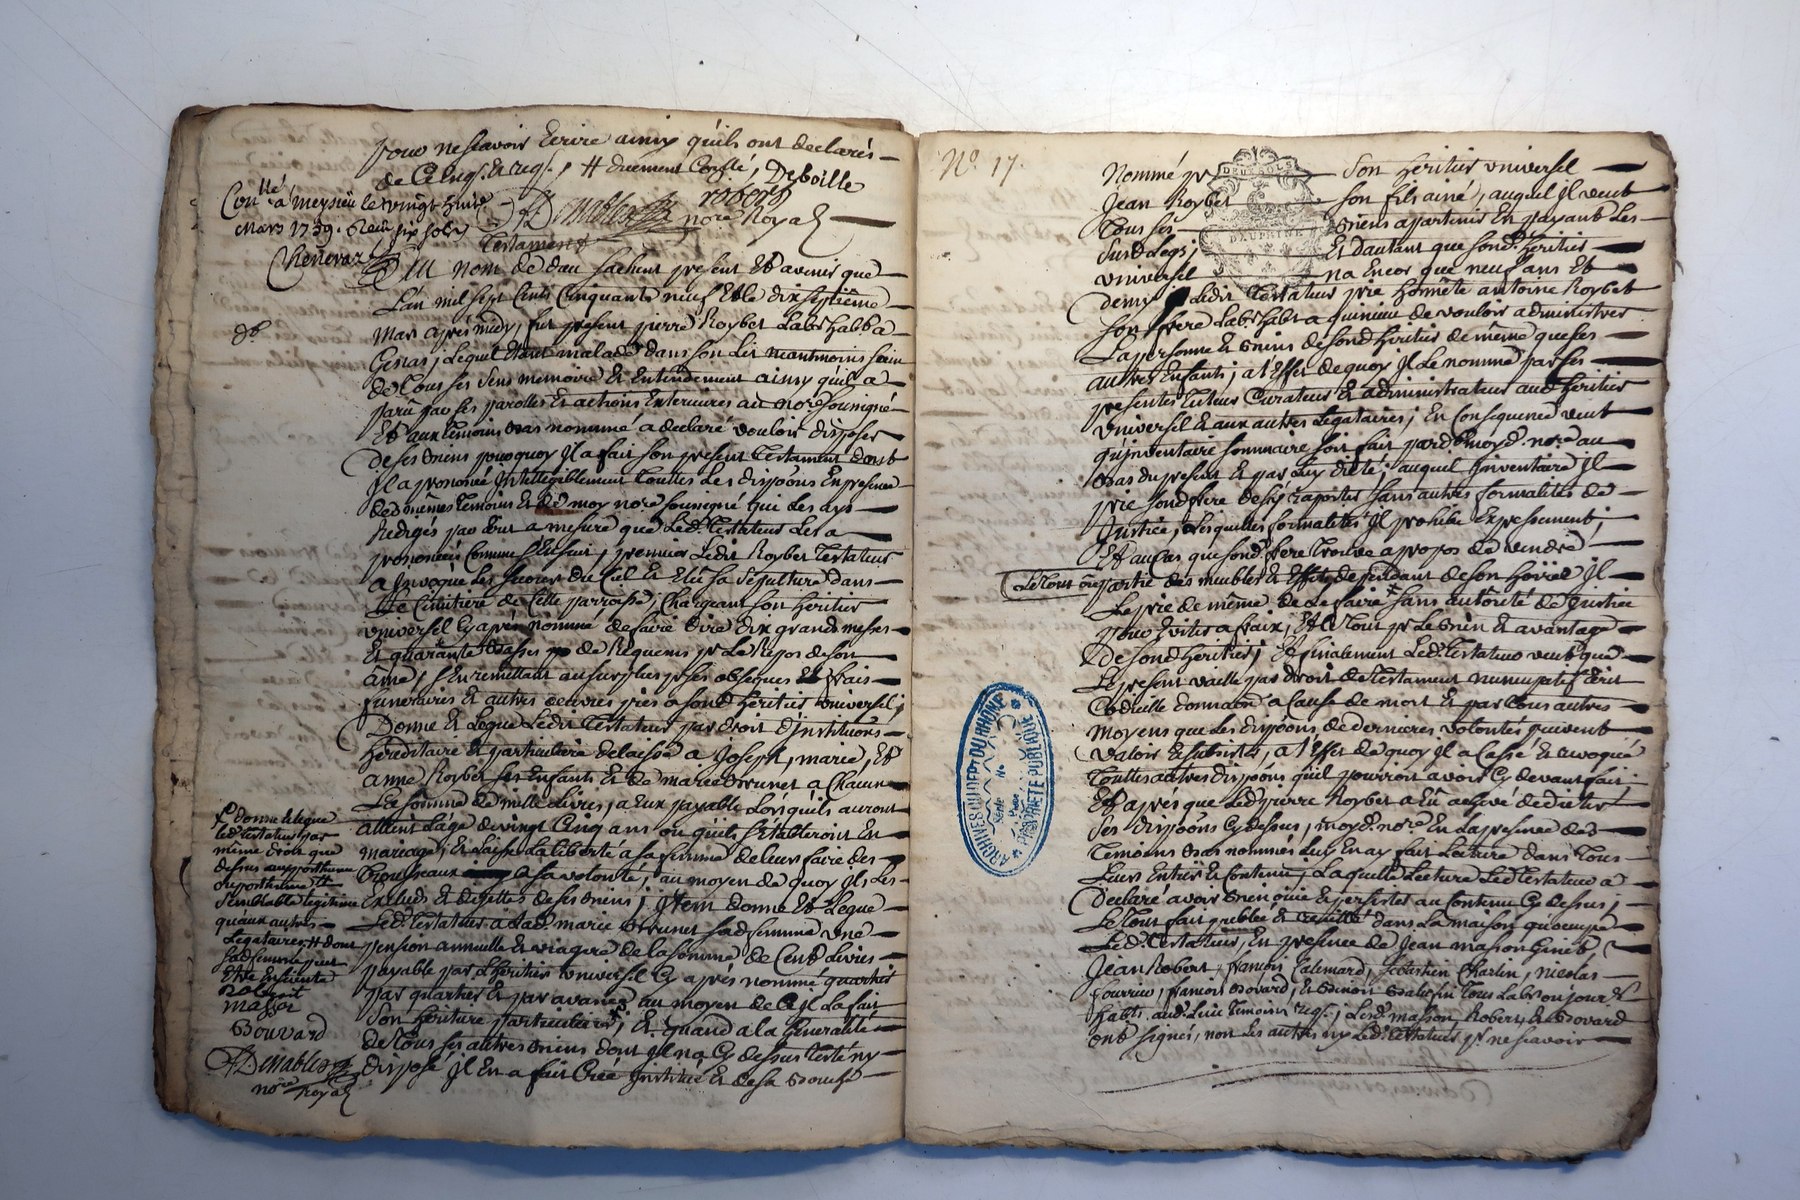 pour ne scavoir Ecrire ainsy qu'ils ont declarés
de ce enq. & req. , # duement Conflé, Deboille
robert
Demables nore. Royal
Conllé à meysieu le vingt huit
Mars 1759. Reçu six sols
Chenevaz
Testament
Au nom de dieu sachent present Et avenir que
L'an mil sept Cents Cinquante neuf Et le dix septième
Mars après midy, fut present pierre Roybet Labr. habt. a
Genas, Lequel Etant malade dans son Lit neantmoins sain
de tous ses sens memoire Et Entendement ainsy qu'il a
paru par ses parolles Et actions Exterieures au nore. soussigné
Et aux temoins bas nommés a declaré vouloir disposer
de ses biens pourquoy Il a fait son present testament dont
Il a prononcé Intelligiblement touttes Les disp̄ons En presence
des mêmes temoins Et de moy nore. soussigné qui Les ay
Redigés par Ecrit a mesure que Led. testateur Les a
prononcées Comme s'Ensuit, premier Ledit Roybet testateur
a Invoqué Les secours du Ciel Et Elû sa sépulture dans
Le Cimitiere de Cette parroisse, Chargeant son heritier
universel Cy après nommé de faire dire dix grands messes
Et quarante basses de Requiem pr. Le Repos de son
ame, s'En remettant au surplus pr. ses obseques Et frais
funeraires Et autres oeuvres pies a sond. héritier universel,
Donne Et Legue Ledit testateur par droit d'institu̅ons
héréditaire Et particuliere delaisse a Joseph, marie, Et
anne Roybet ses Enfants Et de marie brunet a Chacun
La somme de mille Livres, a Eux payable Lors qu'ils auront
atteint L'age de vingt Cinq ans ou qu'ils s'Etabliront En
mariage, Et Laisse La liberté a sa femme de leurs faire des
trousseaux a sa volonté, au moyen de quoy Ils Les
Exclud Et dejette de ses biens; Item donne Et Legue
Led. testateur a Lad. marie brunet sad. femme une
pension annuelle Et viagere de la somme de Cent Livres
payable par L'heritier universel Cy après nommé quartier
par quartier Et par avance au moyen de Ce Il La fait
son héritiere particuliere; Et quand a la Generalité
de tous ses autres biens dont Il n'a Cy dessus testé ny
disposé Il En a fait Crée Institué Et de sa bouche
donne & legue
led. testateur par
même droit que
dessus au posthume
ou posthume
semblable légitime
qu'aux autres
Legataires, # dont
sad. femme peut
être Enceinte
Robert
masson
Bouvard
Demables
nore. Royal
No. 17.
DEUX SOLS
DAUPHINE
Nommé pr. son héritier universel
Jean Roybet son fils ainé, auquel Il veut
tous ses biens appartenir En payant Les
susd. Legs; Et d'autant que sond. héritier
universel n'a Encor que neuf ans Et
demy, Ledit testateur prie honnête antoine Roybet
son frere Labr. habt. a de vouloir administrer
La personne & biens de sond. héritier de même que ses
autres Enfants; a L'Effet de quoy Il Le nomme par Ces
presentes tuteur Curateur Et administrateur aud. héritier
universel Et aux autres Legataires; En Consequence veut
qu'inventaire sommaire soit fait pard. moyd. nore. au
bas du present Et par Luy dicté; auquel Inventaire Il
prie sond. frere de s'y raporter sans autres formalités de
Justice, Lesquelles formalités Il prohibe Expressement;
Et au Cas que sond. frere trouve a propos de vendre
Le tout ou partie des meubles Et Effets dependant de son hoirie Il
Le prie de même de Le faire sans autorité de Justice
pour Eviter a fraix, Et Le tout pr. Le bien Et avantage
de sond. heritier; Et finalement Led. testateur veut que
Le present vaille par droit de testament nuncupatif Ecrit
Codicille donnaōn a Cause de mort Et par tous autres
moyens que Les disp̄ons de dernieres volontés peuvent
valoir Et subsister, a L'Effet de quoy Il a Cassé Et revoqué
touttes autres disp̄ons qu'il pourroit avoir Cy devant fait;
Et après que Led. pierre Roybet a Eû achevé de dicter
ses disp̄ons Cy dessus, moyd. nore. En La presence des
temoins bas nommés Luy En ay fait Lecture dans tous
Leurs Entier Et Contenu; Laquelle Lecture Led. testateur a
Declaré avoir bien ouie Et persister au Contenu Cy dessus;
Le tout fait publié & recitté dans La maison qu'occupe
Led. testateur, En presence de Jean masson
Jean Robert, françois Calemard, sebastien Charlin, nicolas
fourrier, francois bovard, Et Labr. ou jour.
habts. aud. Lieu temoins req.; Lesd. masson, Robert, & bovard
ont signés, non Les autres ny Led. testateur pr. ne scavoir
ARCHIVES DU DEPT DU RHONE
PROPRIETE PUBLIQUE
Série No